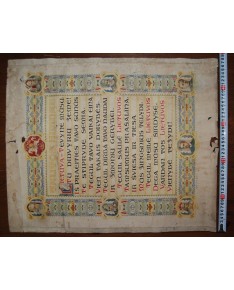 LIETUVA TĖVYNE MŪSŲ,
TU DIDVYRIŲ ŽEME!
IŠ PRAEITIES TAVO SŪNŪS
TE STIPRYBĘ SEMIA.
TEGUL TAVO VAIKAI EINA
VIEN TAKAIS DORYBĖS,
TEGUL DIRBA TAVO NAUDAI
IR ŽMONIŲ GĖRYBEI.
TEGUL SAULĖ LIETUVOS
TAMSUMUS PRAŠALINA
IR ŠVIESA IR TIESA
MŪS ŽINGSNIUS TELYDI.
TEGUL MEILĖ LIETUVOS
DEGA MŪSŲ ŠIRDYSE,
VARDAN TOS LIETUVOS
VIENYBĖ TEŽYDI!